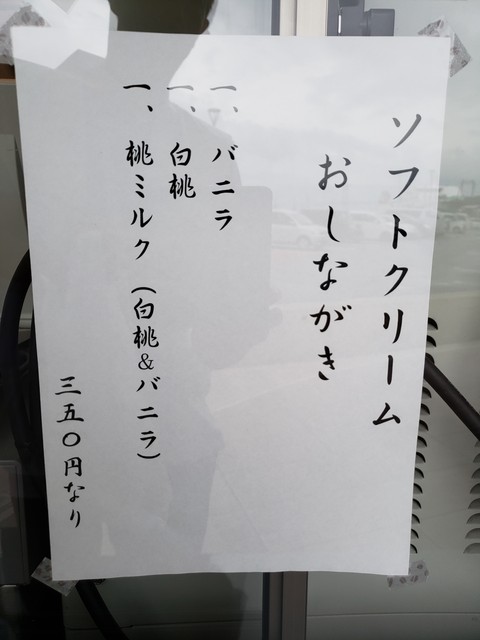 ソフトクリーム
おしながき
一、バニラ
一、白桃
一、桃ミルク（白桃&バニラ）
三五〇円なり